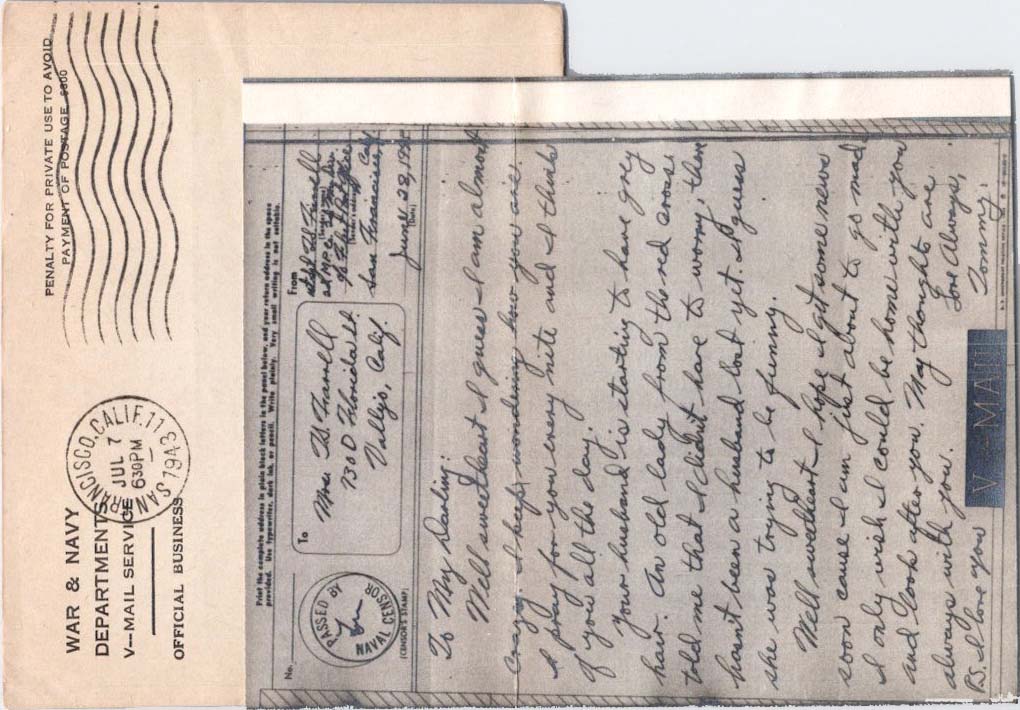 WAR & NAVY
DEPARTMENTS
V—MAIL SERVICE
OFFICIAL BUSINESS
SAN FRANCISCO, CALIF. 11
JUL 7
630PM
1943
PENALTY FOR PRIVATE USE TO AVOID
PAYMENT OF POSTAGE, $300
Print the complete address in plain block letters in the panel below, and your return address in the space
provided. Use typewriter, dark ink, or pencil. Write plainly. Very small writing is not suitable.
No.
PASSED BY
NAVAL CENSOR
(CENSOR'S STAMP)
To
Mrs. W. Farrell
730 D Florida St.
Vallejo, Calif.
From
San Francisco, Cal
(Sender's address)
June 28, 1943
(Date)
To My Darling:
Well sweetheart I guess I am almost
crazy. I keep wondering how you are.
I pray for you every nite and I think
of you all the day.
Your husband is starting to have grey
hair. An old lady from the red cross
told me that I didn't have to worry, then
hasn't been a husband lost yet. I guess
she was trying to be funny.
Well sweetheart I hope I get some news
soon cause I am just about to go mad
I only wish I could be home with you
and look after you. May thoughts are
always with you. Love Always,
P.S. I love you Tommy.
V-MAIL